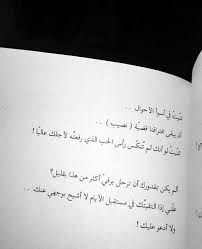 تمنيتُ في أسوأ الأحوال ..
أن يبقى افتراقنا قضيّة ( نصيب ) ..
تمنيتُ لو أنك لم تُنكّس رأس الحب الذي رفعتُه لأجلك عاليًا !
ألم يكن بمقدورك أن ترحل برقيٍّ أكثر من هذا بقليل؟
علّني إذا التقيتُك في مستقبل الأيام لا أشيح بوجهي عنك ...
ولا أدعو عليك !